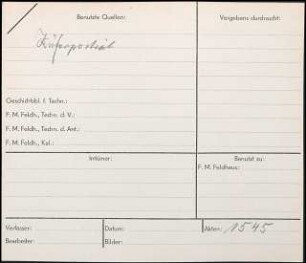 Benutzte Quellen:
Vergebens durchsucht:
Geschichtsbl. f. Techn.:
F. M. Feldh., Techn. d. V.:
F. M. Feldh., Techn. d. Ant.:
F. M. Feldh., Kal.:
Irrtümer:
Benutzt zu:
F. M. Feldhaus:
Verfasser:
Datum:
Akten: 1545
Bearbeiter:
Bilder: